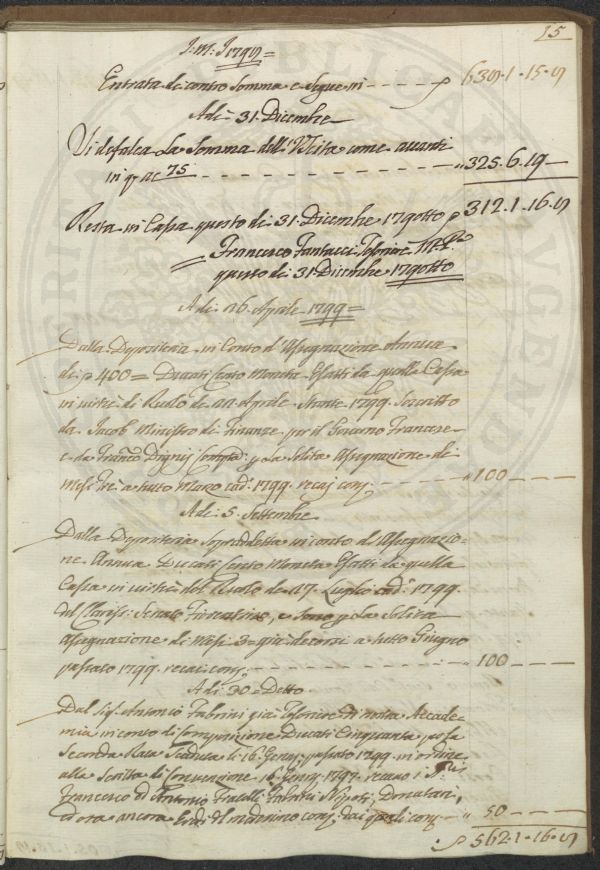 15
J: M: J 1799 =
Entrata di contro Somma e Segue in - - - - p 637.1.15.9
A di 31. Dicembre
Si defalca La Somma dell'Uscita come avanti
in q. ac 75 - - - - - - - - " 325.6.19
Resta in Cassa questo di 31. Dicembre 179otto p 312.1.16.9
Francesco Fantacci Tesoriere M. P.
questo di 31 Dicembre 179otto
A di 26. Aprile 1799 =
Dalla Depositeria in Conto d'Assegnazione Annua
di p 400 = Ducati Cento Moneta Esatti da quella Cassa
in virtù di Ruolo de Aprile Stante 1799. Scritto
da Jacob Ministro di Finanze per il Governo Francese
e da Franco Computa: p La Solita Assegnazione di
Mesi Tre a tutto Marzo cad: 1799. - - - " 100 - - -
A di 5. Settembre
Dalla Depositeria Sopraddetta in conto d'Assegnazio-
ne Annua Ducati Cento Moneta Esatti da quella
Cassa in virtù del Ruolo de 17. Luglio cad: 1799.
del Senato Fiorentino, e Sono p La Solita
Assegnazione di Mesi 3 = già decorsi a tutto Giugno
passato 1799. - - - - - " 100 - - -
A di 30 = Detto
Dal Sig. Antonio Fabrini già Tesoriere di nostra Accade-
mia in conto di Composizione Ducati Cinquanta, p la
Seconda Rata Scaduta li 16. passato 1799. in ordine
alla Scritta di Convenzione 16. 1797. i SSri
Francesco ed Antonio Fratelli Fabrini Nipoti, Donatari,
ed ora ancora Eredi dai quali - - " 50 - - -
p 562.1.16.9